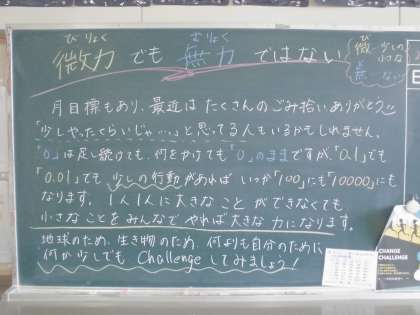 びりょく むりょく
微力 でも 無力 ではない
微 少しの 小さな
無 ない
月目標もあり、最近は たくさんのごみ拾いありがとう
「少しやったくらいじゃ…」と思ってる人もいるかもしれません。
「0」は足し続けても、何をかけても「0」のままですが、「0.1」でも
「0.01」でも、少しの行動があれば いつか「100」にも「10000」にも
なります。 1人1人に大きなことができなくても
小さなことをみんなで やれば大きな力になります。
地球のため、生き物のため、何よりも自分のために
何か少しでも Challengeしてみましょう!
CHANGE
CHALLENGE